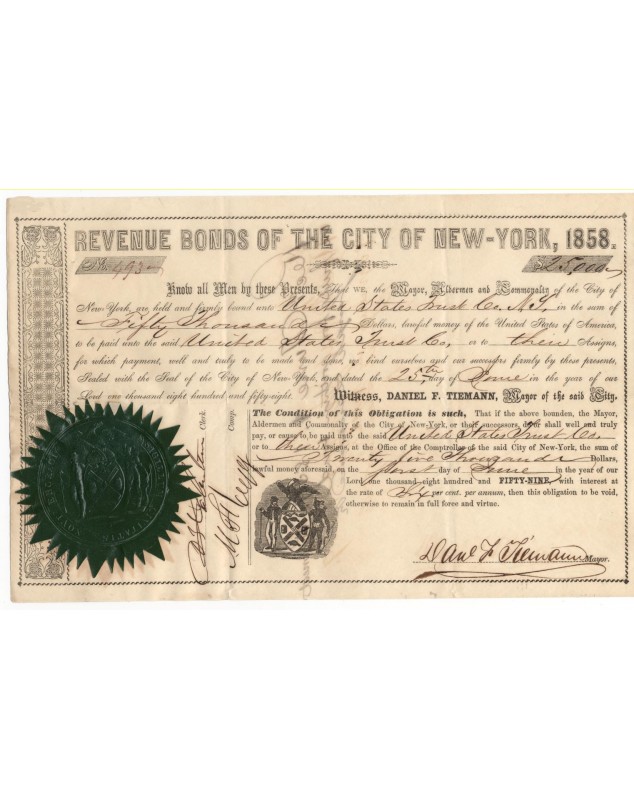 REVENUE BONDS OF THE CITY OF NEW-YORK, 1858.
No. 493 $25,000
Know all Men by these Presents, That WE, the Mayor, Aldermen and Commonalty of the City of
New-York, are held and firmly bound unto United States Trust Co. N.Y. in the sum of
Fifty Thousand Dollars, lawful money of the United States of America,
to be paid unto the said United States Trust Co. or to their Assigns,
for which payment, well and truly to be made and done, we bind ourselves and our successors firmly by these presents,
Sealed with the Seal of the City of New-York, and dated the 25th day of June in the year of our
Lord one thousand eight hundred and fifty-eight. Witness, DANIEL F. TIEMANN, Mayor of the said City.
The Condition of this Obligation is such, That if the above bounden, the Mayor,
Aldermen and Commonalty of the City of New-York, or their successors, do or shall well and truly
pay, or cause to be paid unto the said United States Trust Co.
or to their Assigns, at the Office of the Comptroller of the said City of New-York, the sum of
Twenty five Thousand Dollars,
lawful money aforesaid, on the first day of June in the year of our
Lord one thousand eight hundred and FIFTY-NINE, with interest at
the rate of Six per cent. per annum, then this obligation to be void,
otherwise to remain in full force and virtue.
Clerk.
Comp.
Danl F. Tiemann Mayor.